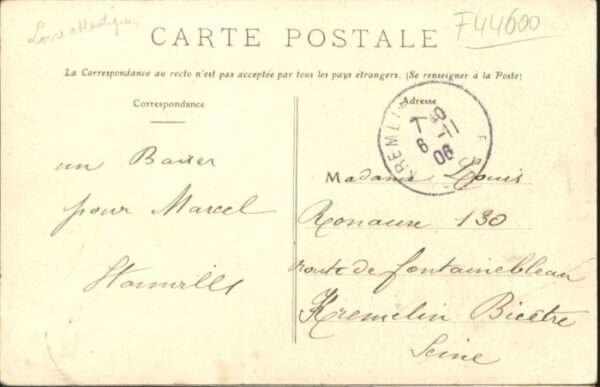 Loire atlantique
F44600
CARTE POSTALE
La Correspondance au recto n'est pas acceptée par tous les pays étrangers. (Se renseigner à la Poste)
Correspondance
un Baiser
pour Marcel
Adresse
KREMLIN
6 -11
06
Madame Louis
130
route de fontainebleau
Kremelin Bicêtre
Seine